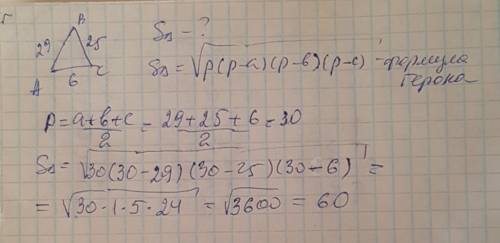 B
29 25
A 6 C
S△ - ?
S△ = √p(p-a)(p-b)(p-c) - формула
Герона
P = a+b+c/2 = 29+25+6/2 = 30
S△ = √30(30-29)(30-25)(30-6) =
= √30·1·5·24 = √3600 = 60